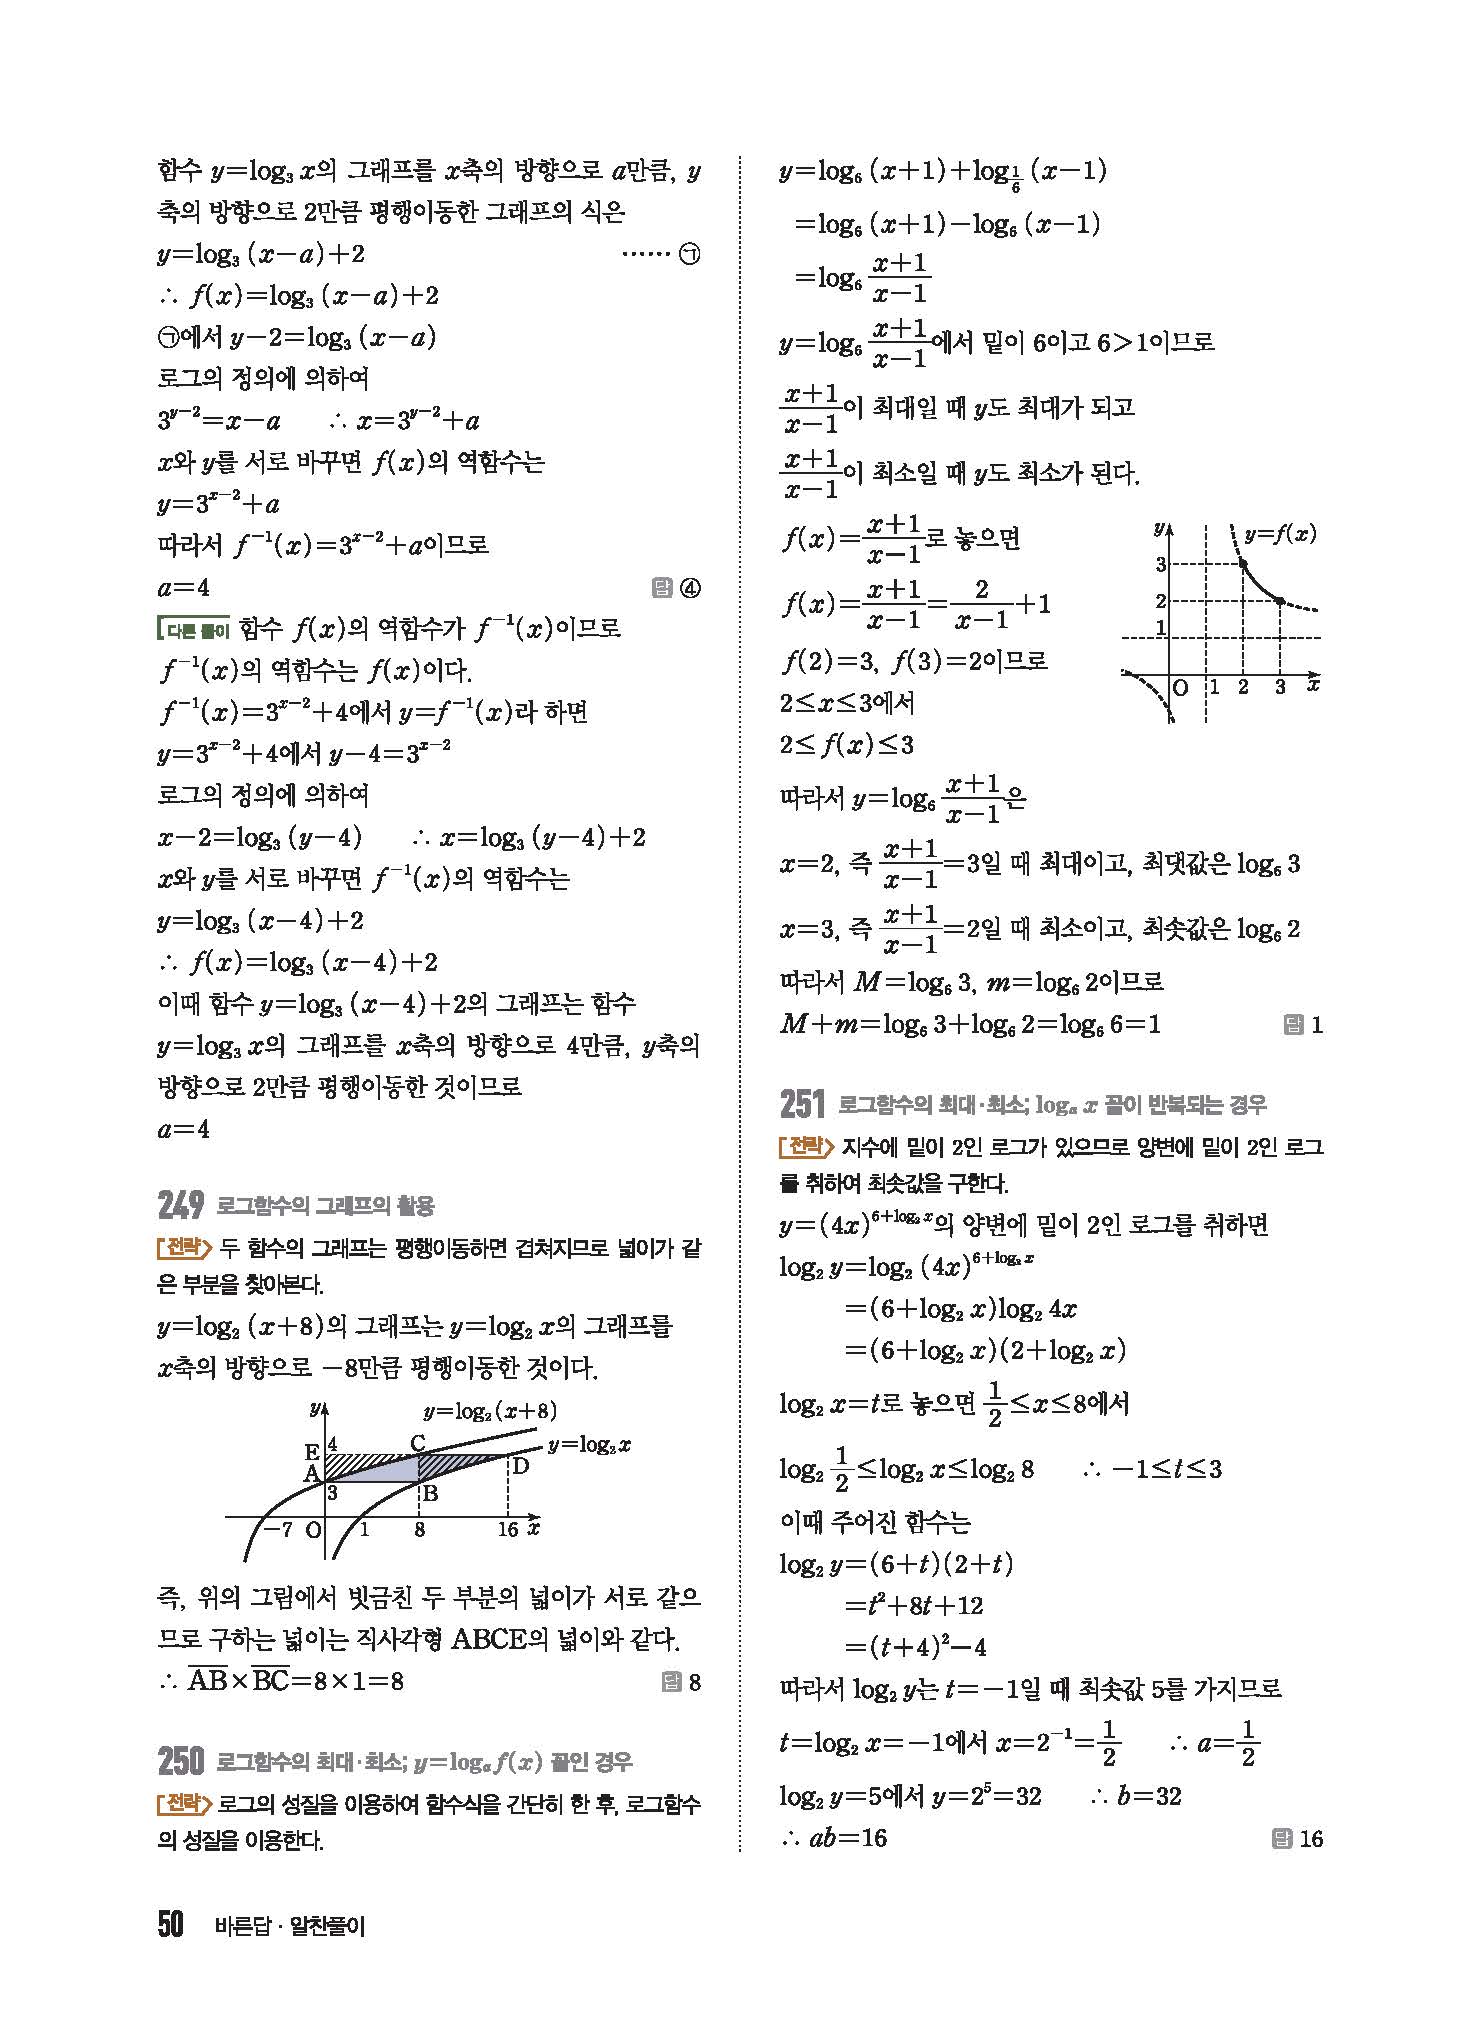 함수 y=log₃ x의 그래프를 x축의 방향으로 a만큼, y
축의 방향으로 2만큼 평행이동한 그래프의 식은
y=log₃ (x-a)+2 …… ㉠
∴ f(x)=log₃ (x-a)+2
㉠에서 y-2=log₃ (x-a)
로그의 정의에 의하여
3^{y-2}=x-a ∴ x=3^{y-2}+a
x와 y를 서로 바꾸면 f(x)의 역함수는
y=3^{x-2}+a
따라서 f⁻¹(x)=3^{x-2}+a이므로
a=4 답 ④
다른 풀이 함수 f(x)의 역함수가 f⁻¹(x)이므로
f⁻¹(x)의 역함수는 f(x)이다.
f⁻¹(x)=3^{x-2}+4에서 y=f⁻¹(x)라 하면
y=3^{x-2}+4에서 y-4=3^{x-2}
로그의 정의에 의하여
x-2=log₃ (y-4) ∴ x=log₃ (y-4)+2
x와 y를 서로 바꾸면 f⁻¹(x)의 역함수는
y=log₃ (x-4)+2
∴ f(x)=log₃ (x-4)+2
이때 함수 y=log₃ (x-4)+2의 그래프는 함수
y=log₃ x의 그래프를 x축의 방향으로 4만큼, y축의
방향으로 2만큼 평행이동한 것이므로
a=4
249 로그함수의 그래프의 활용
전략 두 함수의 그래프는 평행이동하면 겹쳐지므로 넓이가 같
은 부분을 찾아본다.
y=log₂ (x+8)의 그래프는 y=log₂ x의 그래프를
x축의 방향으로 -8만큼 평행이동한 것이다.
y y=log₂(x+8)
E 4 C y=log₂x
A D
3 B
-7 O 1 8 16 x
즉, 위의 그림에서 빗금친 두 부분의 넓이가 서로 같으
므로 구하는 넓이는 직사각형 ABCE의 넓이와 같다.
∴ A̅B̅×B̅C̅=8×1=8 답 8
250 로그함수의 최대·최소; y=logₐ f(x) 꼴인 경우
전략 로그의 성질을 이용하여 함수식을 간단히 한 후, 로그함수
의 성질을 이용한다.
y=log₆ (x+1)+log_{1/6} (x-1)
=log₆ (x+1)-log₆ (x-1)
=log₆ \frac{x+1}{x-1}
y=log₆ \frac{x+1}{x-1}에서 밑이 6이고 6>1이므로
\frac{x+1}{x-1}이 최대일 때 y도 최대가 되고
\frac{x+1}{x-1}이 최소일 때 y도 최소가 된다.
f(x)=\frac{x+1}{x-1}로 놓으면
f(x)=\frac{x+1}{x-1}=\frac{2}{x-1}+1
f(2)=3, f(3)=2이므로
2≤x≤3에서
2≤f(x)≤3
y y=f(x)
3
2
1
O 1 2 3 x
따라서 y=log₆ \frac{x+1}{x-1}은
x=2, 즉 \frac{x+1}{x-1}=3일 때 최대이고, 최댓값은 log₆ 3
x=3, 즉 \frac{x+1}{x-1}=2일 때 최소이고, 최솟값은 log₆ 2
따라서 M=log₆ 3, m=log₆ 2이므로
M+m=log₆ 3+log₆ 2=log₆ 6=1 답 1
251 로그함수의 최대·최소; logₐ x 꼴이 반복되는 경우
전략 지수에 밑이 2인 로그가 있으므로 양변에 밑이 2인 로그
를 취하여 최솟값을 구한다.
y=(4x)^{6+log₂ x}의 양변에 밑이 2인 로그를 취하면
log₂ y=log₂ (4x)^{6+log₂ x}
=(6+log₂ x)log₂ 4x
=(6+log₂ x)(2+log₂ x)
log₂ x=t로 놓으면 \frac{1}{2}≤x≤8에서
log₂ \frac{1}{2}≤log₂ x≤log₂ 8 ∴ -1≤t≤3
이때 주어진 함수는
log₂ y=(6+t)(2+t)
=t²+8t+12
=(t+4)²-4
따라서 log₂ y는 t=-1일 때 최솟값 5를 가지므로
t=log₂ x=-1에서 x=2⁻¹=\frac{1}{2} ∴ a=\frac{1}{2}
log₂ y=5에서 y=2⁵=32 ∴ b=32
∴ ab=16 답 16
50 바른답·알찬풀이